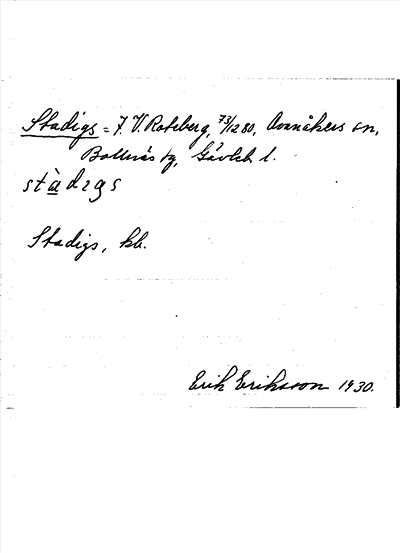 Stadigs = 7. V. Roteberg, 73/1280, Ovanåkers sn,
Bollnäs tg, Gävleb l.
stàdıgs
Stadigs, kb.
Erik Eriksson 1930.